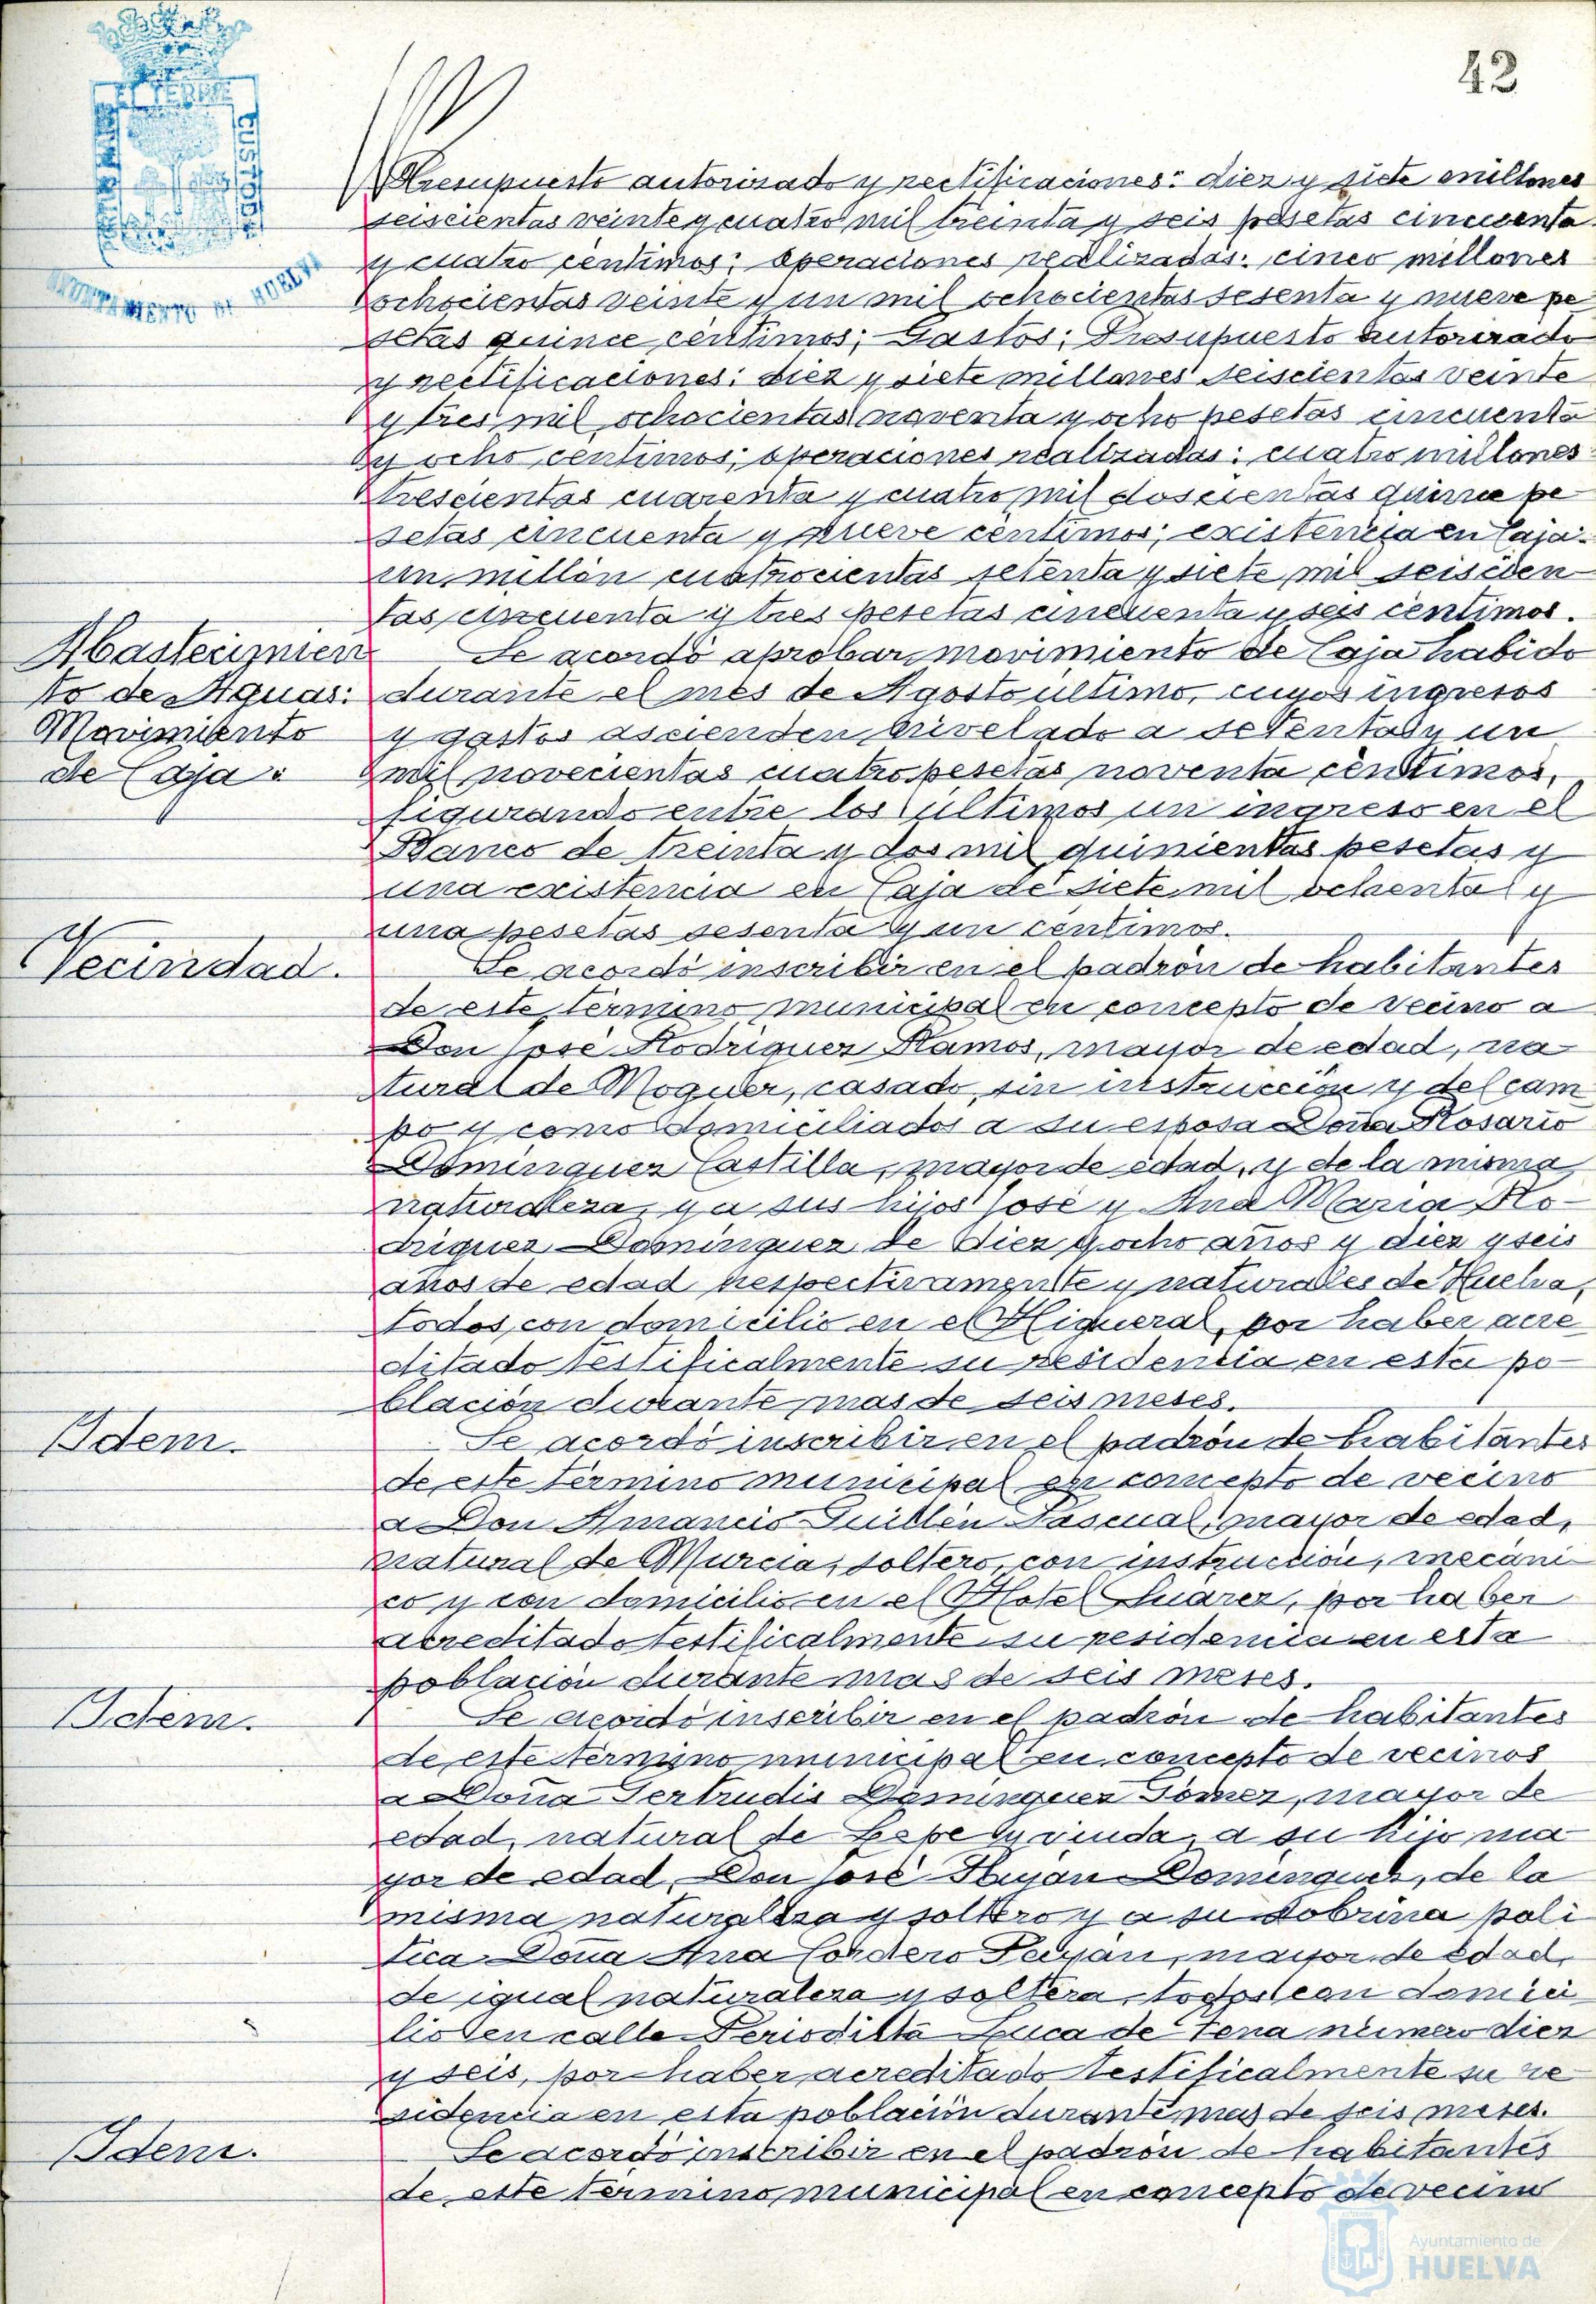 42
Presupuesto autorizado y rectificaciones: diez y siete millones
seiscientas veinte y cuatro mil treinta y seis pesetas cincuenta
y cuatro céntimos; operaciones realizadas: cinco millones
ochocientas veinte y un mil ochocientas sesenta y nueve pe
setas quince céntimos; Gastos: Presupuesto autorizado
y rectificaciones: diez y siete millones seiscientas veinte
y tres mil ochocientas noventa y ocho pesetas cincuenta
y ocho centimos; operaciones realizadas: cuatro millones
trescientas cuarenta y cuatro mil doscientas quince pe
setas cincuenta y nueve céntimos; existencia en Caja:
un millón cuatrocientas setenta y siete mil seiscien
tas cincuenta y tres pesetas cincuenta y seis céntimos.
Abastecimien
to de Aguas:
Movimiento
de Caja:
Se acordó aprobar movimiento de Caja habido
durante el mes de Agosto último, cuyos ingresos
y gastos ascienden nivelado a setenta y un
mil novecientas cuatro pesetas noventa céntimos,
figurando entre los últimos un ingreso en el
Banco de treinta y dos mil quinientas pesetas y
una existencia en Caja de siete mil ochenta y
una pesetas sesenta y un céntimos.
Vecindad.
Se acordó inscribir en el padrón de habitantes
de este término municipal en concepto de vecino a
Don José Rodriguez Ramos, mayor de edad, na
tural de Moguer, casado, sin instrucción y del cam
po y como domiciliados a su esposa Doña Rosario
Dominguez Castilla, mayor de edad, y de la misma
naturaleza, y a sus hijos José y Ana Maria Ro-
driguez Dominguez de diez y ocho años y diez y seis
años de edad respectivamente y naturales de Huelva,
todos con domicilio en el Higueral, por haber acre
ditado testificalmente su residencia en esta po-
blación durante mas de seis meses.
Idem.
Se acordó inscribir en el padrón de habitantes
de este término municipal en concepto de vecino
a Don Amancio Guillén Pascual, mayor de edad,
natural de Murcia, soltero, con instrucción, mecáni
co y con domicilio en el Hotel Suarez, por haber
acreditado testificalmente su residencia en esta
población durante mas de seis meses.
Idem.
Se acordó inscribir en el padrón de habitantes
de este término municipal en concepto de vecinos
a Doña Gertrudis Dominguez Gómez, mayor de
edad, natural de Lepe y viuda, a su hijo ma
yor de edad, Don José Dominguez, de la
misma naturaleza y soltero y a su sobrina poli
tica Doña Ana Cordero Payán, mayor de edad,
de igual naturaleza y soltera, todos con domici
lio en calle Periodista Luca de Tena número diez
y seis, por haber acreditado testificalmente su re
sidencia en esta población durante mas de seis meses.
Idem.
Se acordó inscribir en el padrón de habitantes
de este término municipal en concepto de vecino
AYUNTAMIENTO DE HUELVA
CUSTODIA
Ayuntamiento de
HUELVA